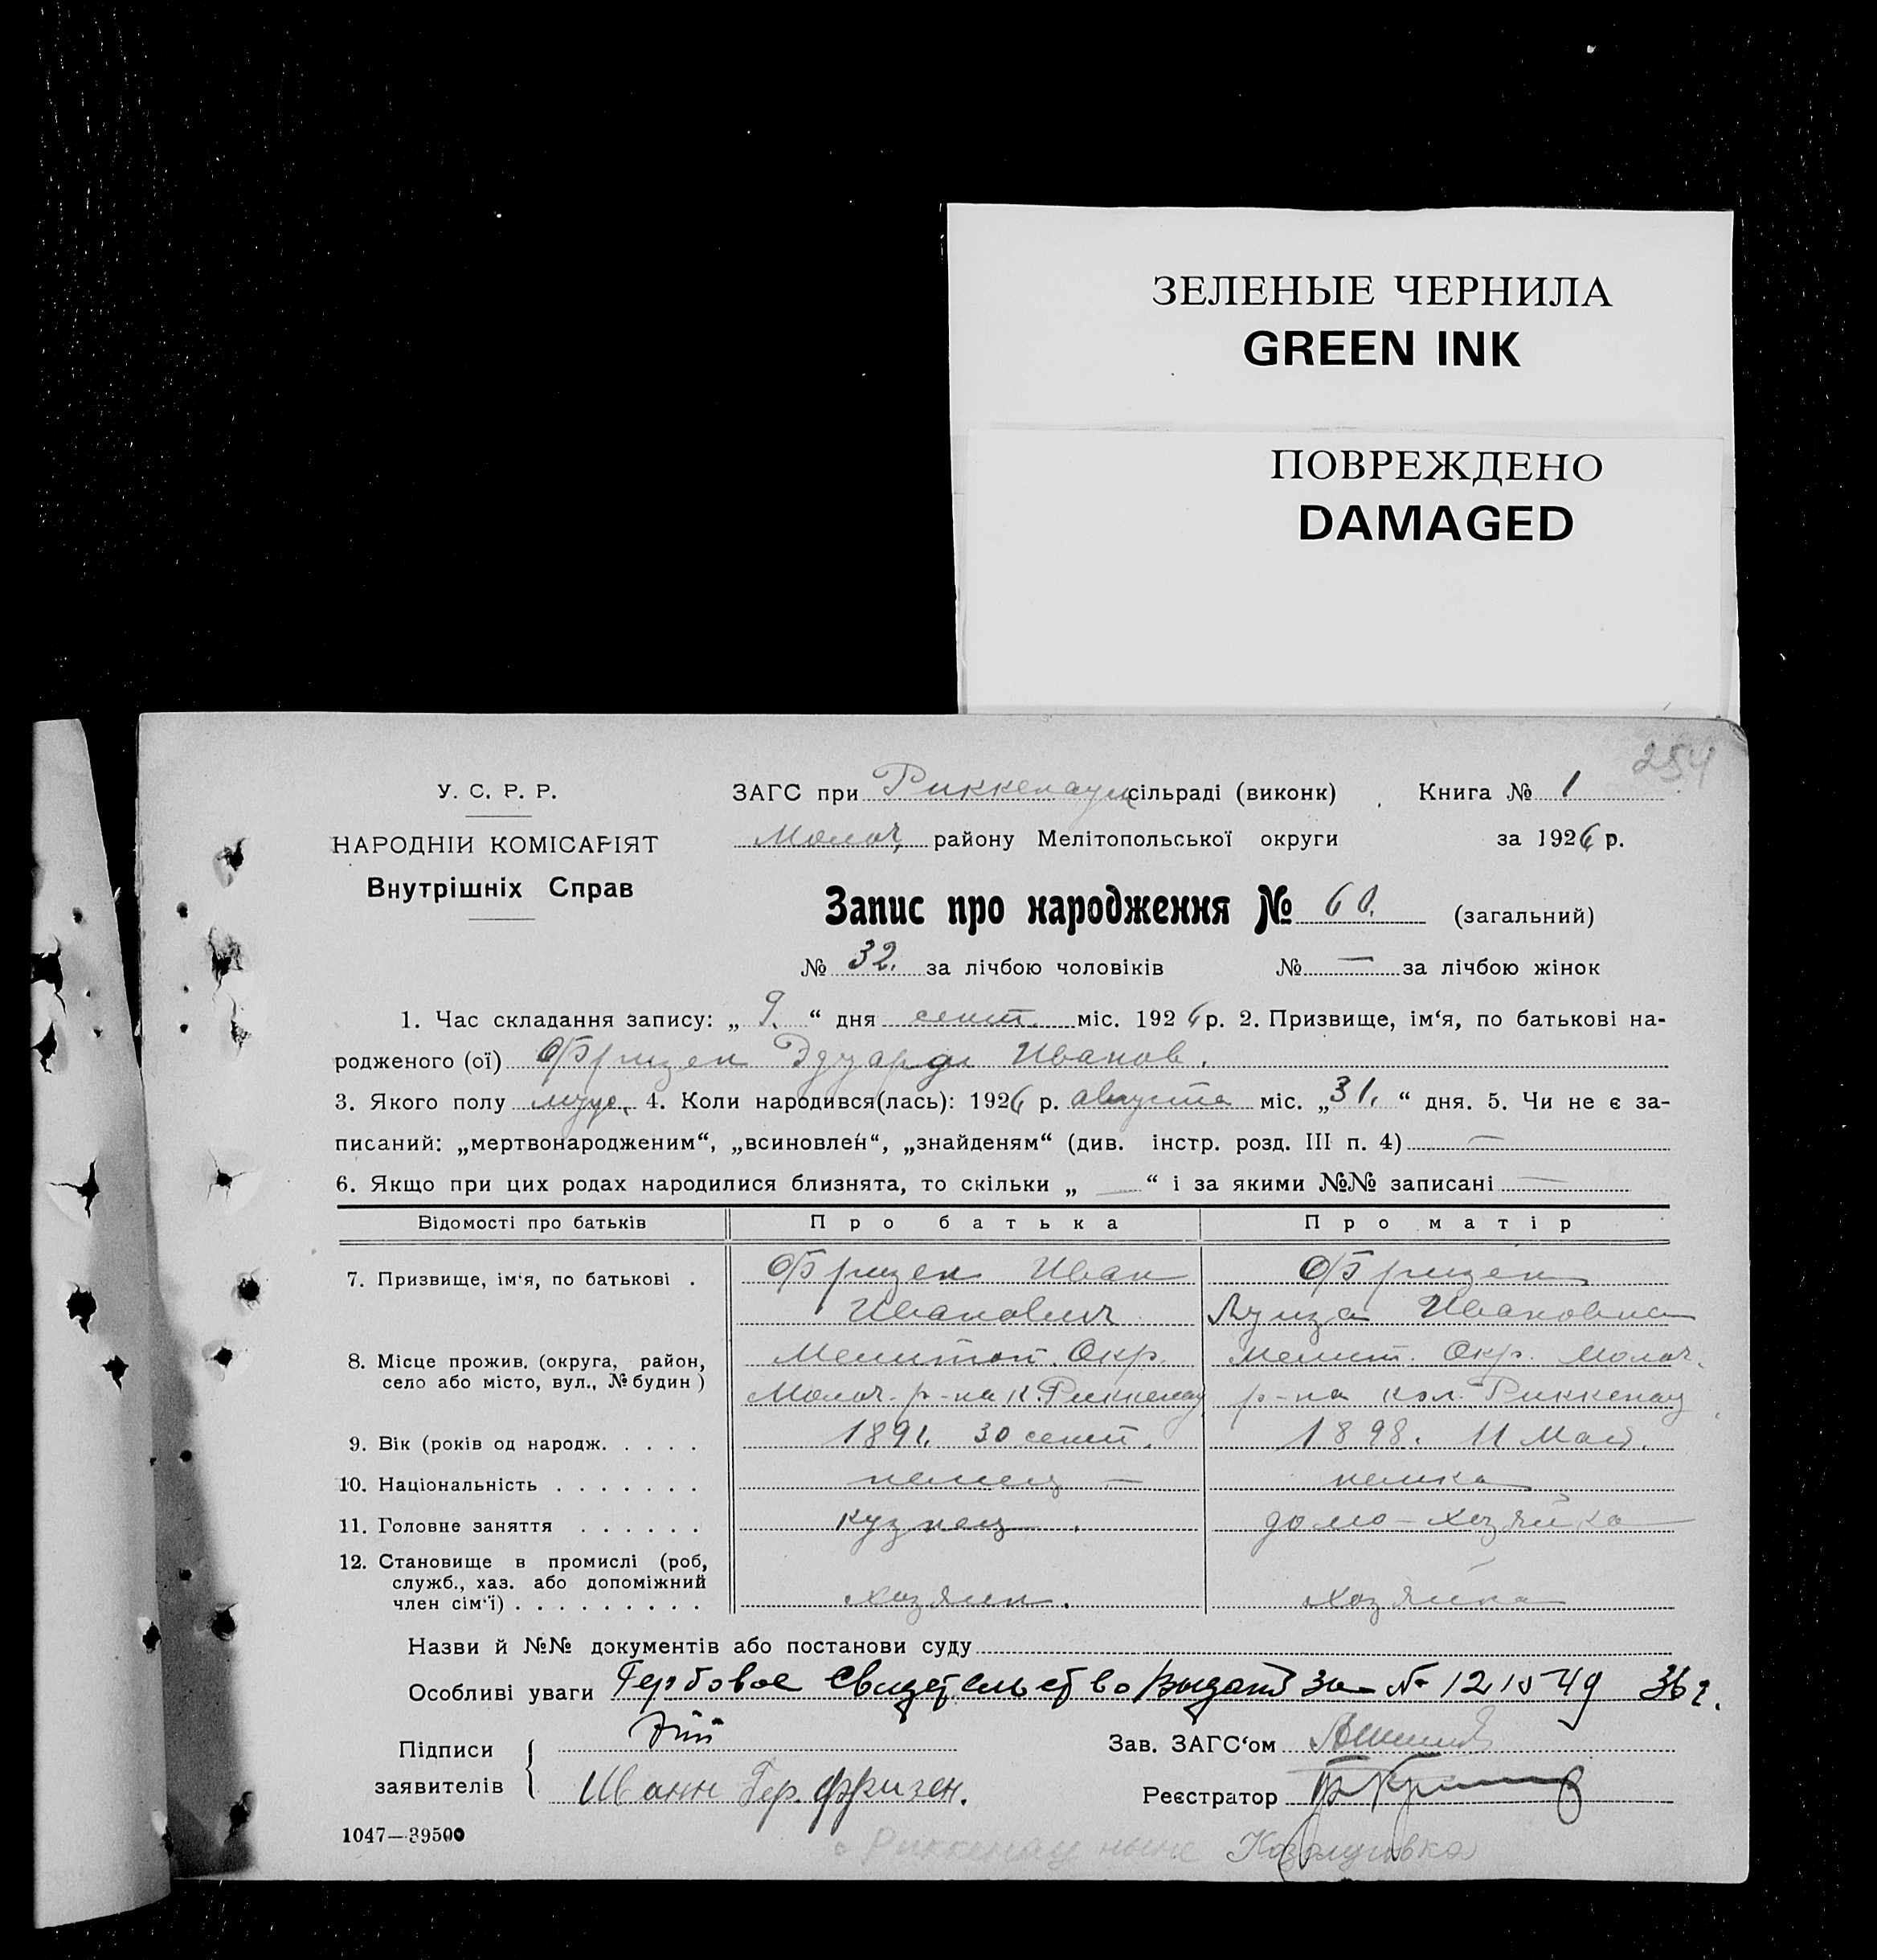 ЗЕЛЕНЫЕ ЧЕРНИЛА
GREEN INK
ПОВРЕЖДЕНО
DAMAGED
254
У. С. Р. Р.
ЗАГС при Риккенауск сільраді (виконк) Книга № 1
НАРОДНІЙ КОМІСАРІЯТ
Молоч. району Мелітопольської округи за 1926 р.
Внутрішніх Справ
Запис про народження № 60. (загальний)
№ 32. за лічбою чоловіків № — за лічбою жінок
1. Час складання запису: „ 9. “ дня сент. міс. 1926 р. 2. Призвище, ім‘я, по батькові на-
родженого (ої) Фризен Эдуард Иванов.
3. Якого полу муж. 4. Коли народився(лась): 1926 р. августа міс. „31. “ дня. 5. Чи не є за-
писаний: „мертвонародженим“, „всиновлен“, „знайденям“ (див. інстр. розд. III п. 4) —
6. Якщо при цих родах народилися близнята, то скільки „ — “ і за якими №№ записані —
Відомості про батьків Про батька Про матір
7. Призвище, ім‘я, по батькові . Фризен Иван Фризен
Иванович Луиза Ивановна
8. Місце прожив. (округа, район, Мелитоп. Окр. Мелит. Окр. Молоч.
село або місто, вул., № будин) Молоч. р-на к. Риккенау р-на кол. Риккенау
9. Вік (років од народж. . . . . 1891. 30 сент. 1898. 11 Мая.
10. Національність . . . . . . . немец — немка
11. Головне заняття . . . . . . кузнец. домо-хозяйка
12. Становище в промислі (роб,
служб., хаз. або допоміжний
член сім‘ї) . . . . . . . . . хозяин. хозяйка
Назви й №№ документів або постанови суду
Особливі уваги Гербовое свидетельство выдано за № 36 г.
Підписи Зав. ЗАГС‘ом
заявителів Иванн Гер. Фризен. Реєстратор
1047—39500
Риккенау ныне